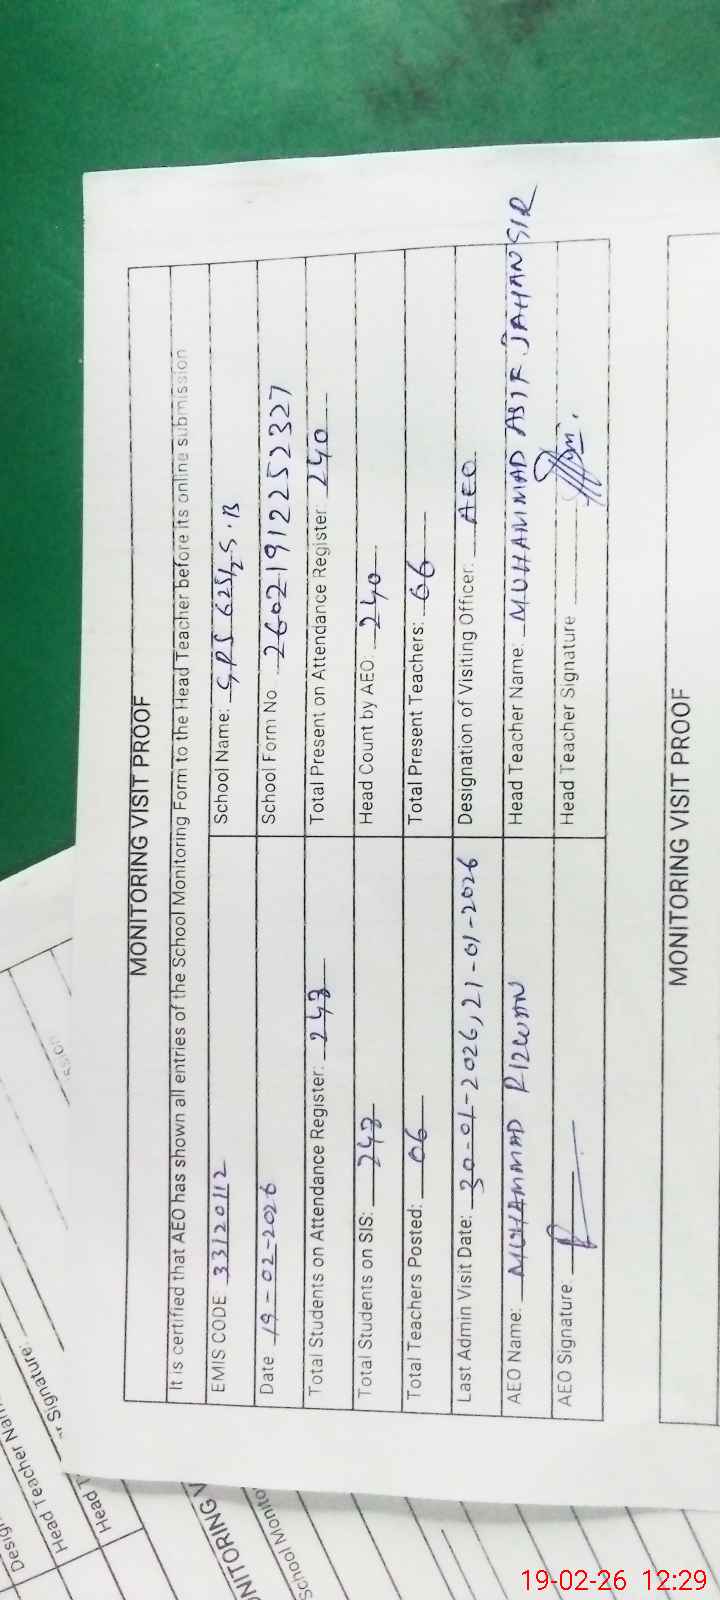 MONITORING VISIT PROOF
It is certified that AEO has shown all entries of the School Monitoring Form to the Head Teacher before its online submission
EMIS CODE: 33120112 School Name: GPS 625/2 S.B
Date 19-02-2026 School Form No 2602191225 2327
Total Students on Attendance Register: 243 Total Present on Attendance Register: 240
Total Students on SIS: 243 Head Count by AEO: 240
Total Teachers Posted: 06 Total Present Teachers: 06
Last Admin Visit Date: 30-01-2026, 21-01-2026 Designation of Visiting Officer: AEO
AEO Name: MUHAMMAD RIZWAN Head Teacher Name: MUHAMMAD ASIF JAHANGIR
AEO Signature: Head Teacher Signature
MONITORING VISIT PROOF
Head Teacher
Signature:
Head T
School Monito
19-02-26 12:29